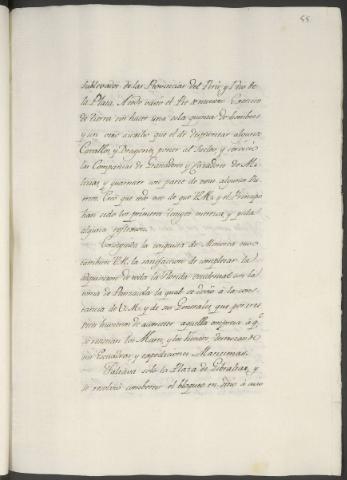 55
sublevados de las Provincias del Perú y Rio de
la Plata. A todo vino el Exto numeroso Exercito
de tierra sin hacer una sola quinta de hombres
y sin mas auxilio que el de desmontar algunos
Cavallos y Dragones, poner al Sueldo y servicio
las Compañias de Granaderos y Cazadores de Mi-
licias y guarnecer una parte de estas algunos Pu-
ertos. Creo que esto sea de que V.M. y el Principe
han sido los primeros tengan memoria y pida
alguna reflexion.
Conseguida la conquista de Menorca tuvo
tambien V.M. la satisfaccion de completar la
adquisicion de toda la Florida occidental con la
toma de Panzacola la qual se debió á la cons-
tancia de V.M. y de sus Generales que por tres
veces huvieron de acometer aquella empresa á q.e
se resistian los Mares, y los Vientos, destrozando
sus Esquadras y expediciones Maritimas.
Faltava solo la Plaza de Gibraltar, y
se resolvió convertir el bloqueo en sitio á cuio